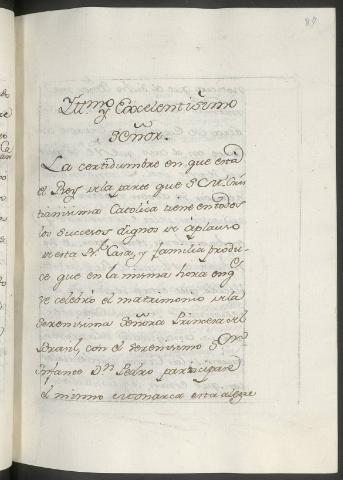 89
Yllmo y Excelentissimo
Señor.
La certidumbre en que está
el Rey de la parte que S. M. Chris
tianissima Catolica tiene en todos
los sucesos dignos de aplauso
de esta Rl Casa, y familia produ
ce que en la misma hora en q
se celebró el matrimonio de la
Serenissima Señora Princesa del
Brasil, con el Serenissimo Sor
Infante Dn Pedro participase
el mismo Monarca esta alegre